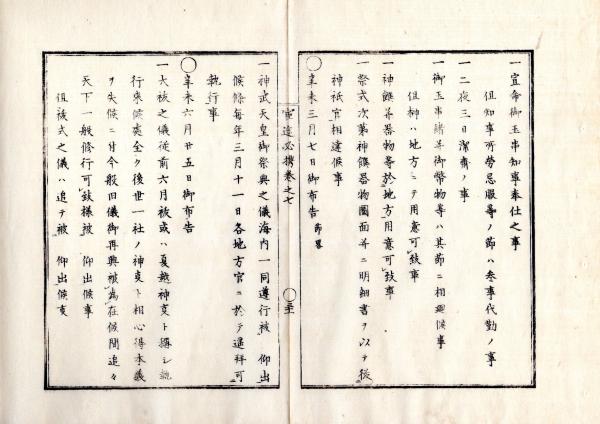 一宣命御玉串知事奉仕之事
但知事所労忌服等ノ節ハ参事代勤ノ事
一二夜三日潔齋ノ事
一御玉串諸品御幣物等ハ其節ニ相廻候事
但榊ハ地方ニテ用意可致事
一神饌并器物等於地方用意可致事
一祭式次第神饌器物圖面并ニ明細書ヲ以テ従
神祇官相達候事
○辛未三月七日御布告 節畧
憲違必携巻之七
一神武天皇御祭典之儀海内一同遵行被 仰出
候條毎年三月十一日各地方官ニ於テ遥拜可
執行事
○辛未六月廿五日御布告
一大祓之儀従前六月祓或ハ夏越神事ト稱シ執
行来候處全ク後世一社ノ神事ト相心得本義
ヲ失候ニ付今般旧儀御再興被為在候間追々
天下一般修行可致様被 仰出候事
但祓式之儀ハ追テ被 仰出候事